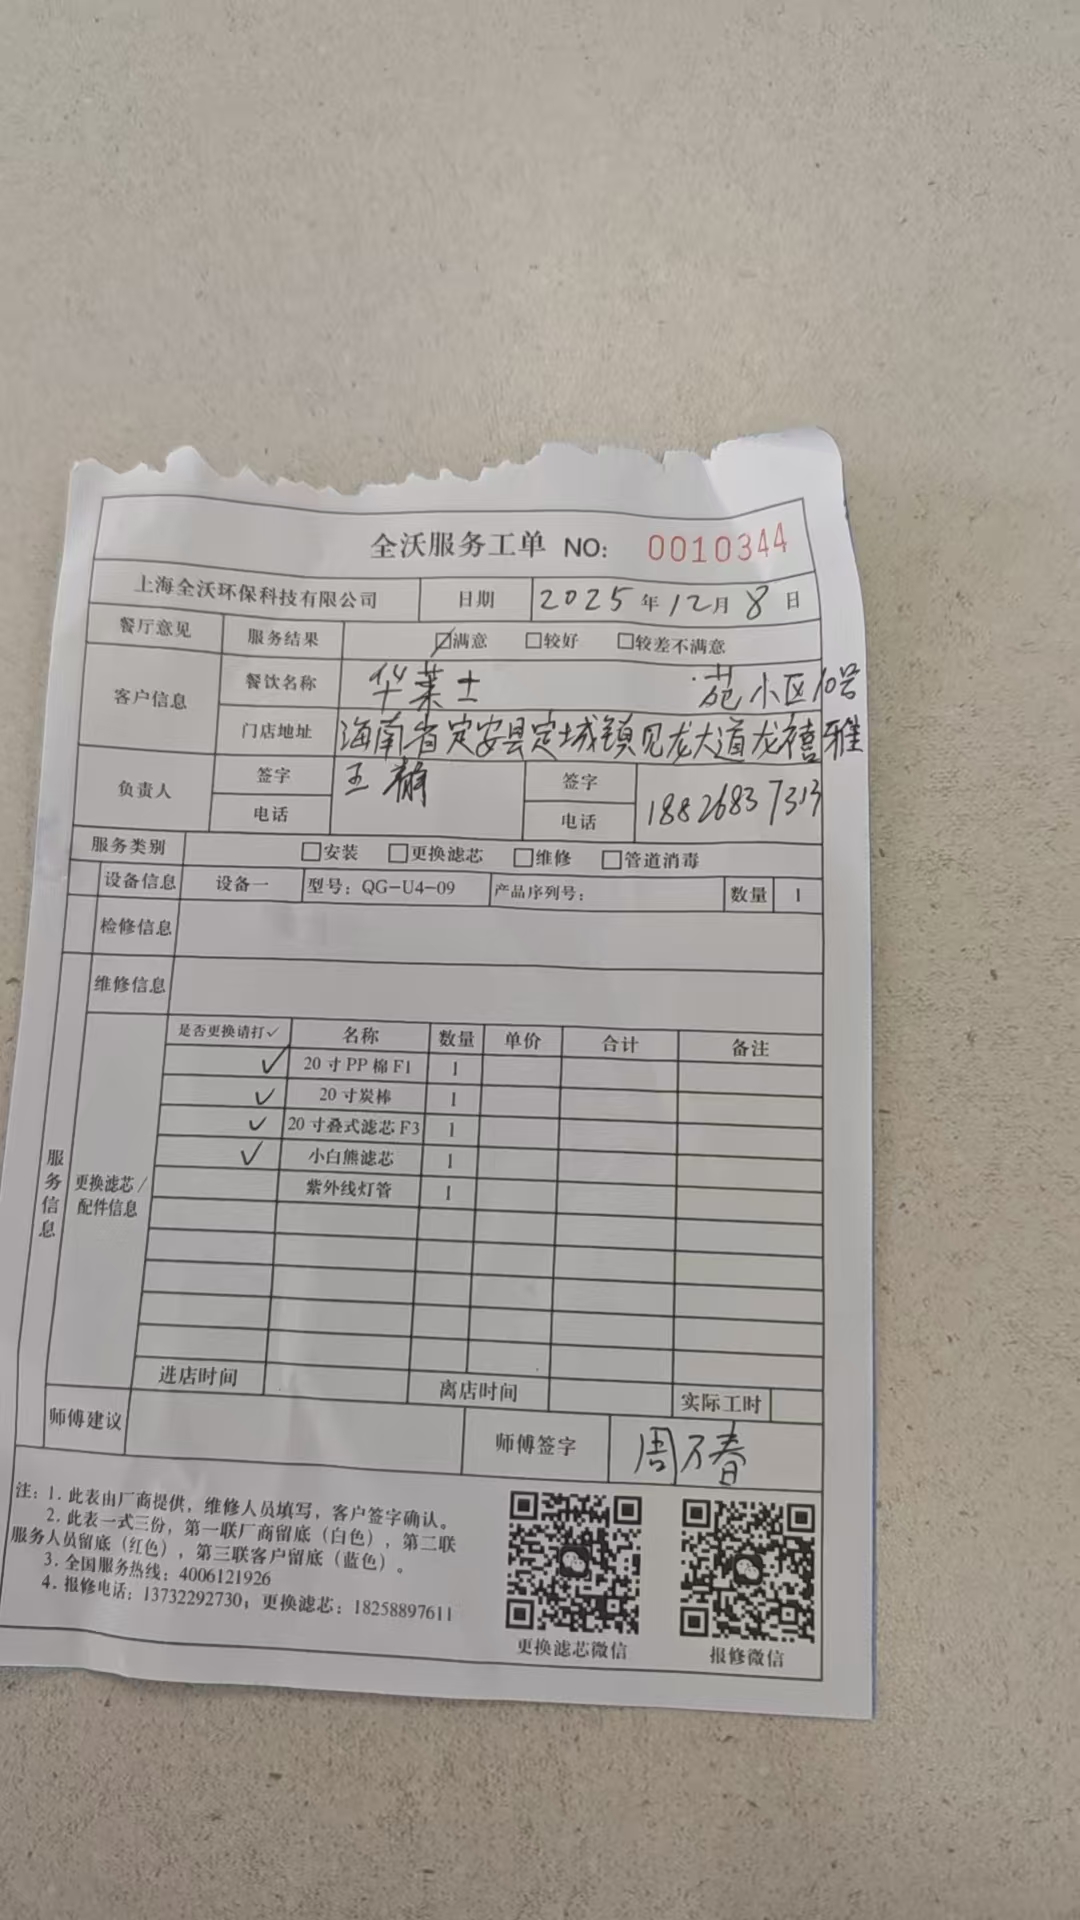 全沃服务工单 NO: 0010344
上海全沃环保科技有限公司 日期 2025年12月8日
餐厅意见 服务结果 ☑满意 □较好 □较差不满意
客户信息 餐饮名称 华莱士 苑小区10号
门店地址 海南省定安县定城镇见龙大道龙禧雅
负责人 签字 王 签字
电话 电话 18826837313
服务类别 □安装 □更换滤芯 □维修 □管道消毒
设备信息 设备一 型号：QG-U4-09 产品序列号： 数量 1
检修信息
维修信息
服务信息
更换滤芯/配件信息
是否更换请打✓ 名称 数量 单价 合计 备注
✓ 20寸PP棉F1 1
✓ 20寸炭棒 1
✓ 20寸叠式滤芯F3 1
✓ 小白熊滤芯 1
紫外线灯管 1
进店时间 离店时间 实际工时
师傅建议 师傅签字 周万春
注：1. 此表由厂商提供，维修人员填写，客户签字确认。
2. 此表一式三份，第一联厂商留底（白色），第二联
服务人员留底（红色），第三联客户留底（蓝色）。
3. 全国服务热线：4006121926
4. 报修电话：13732292730；更换滤芯：18258897611
更换滤芯微信 报修微信